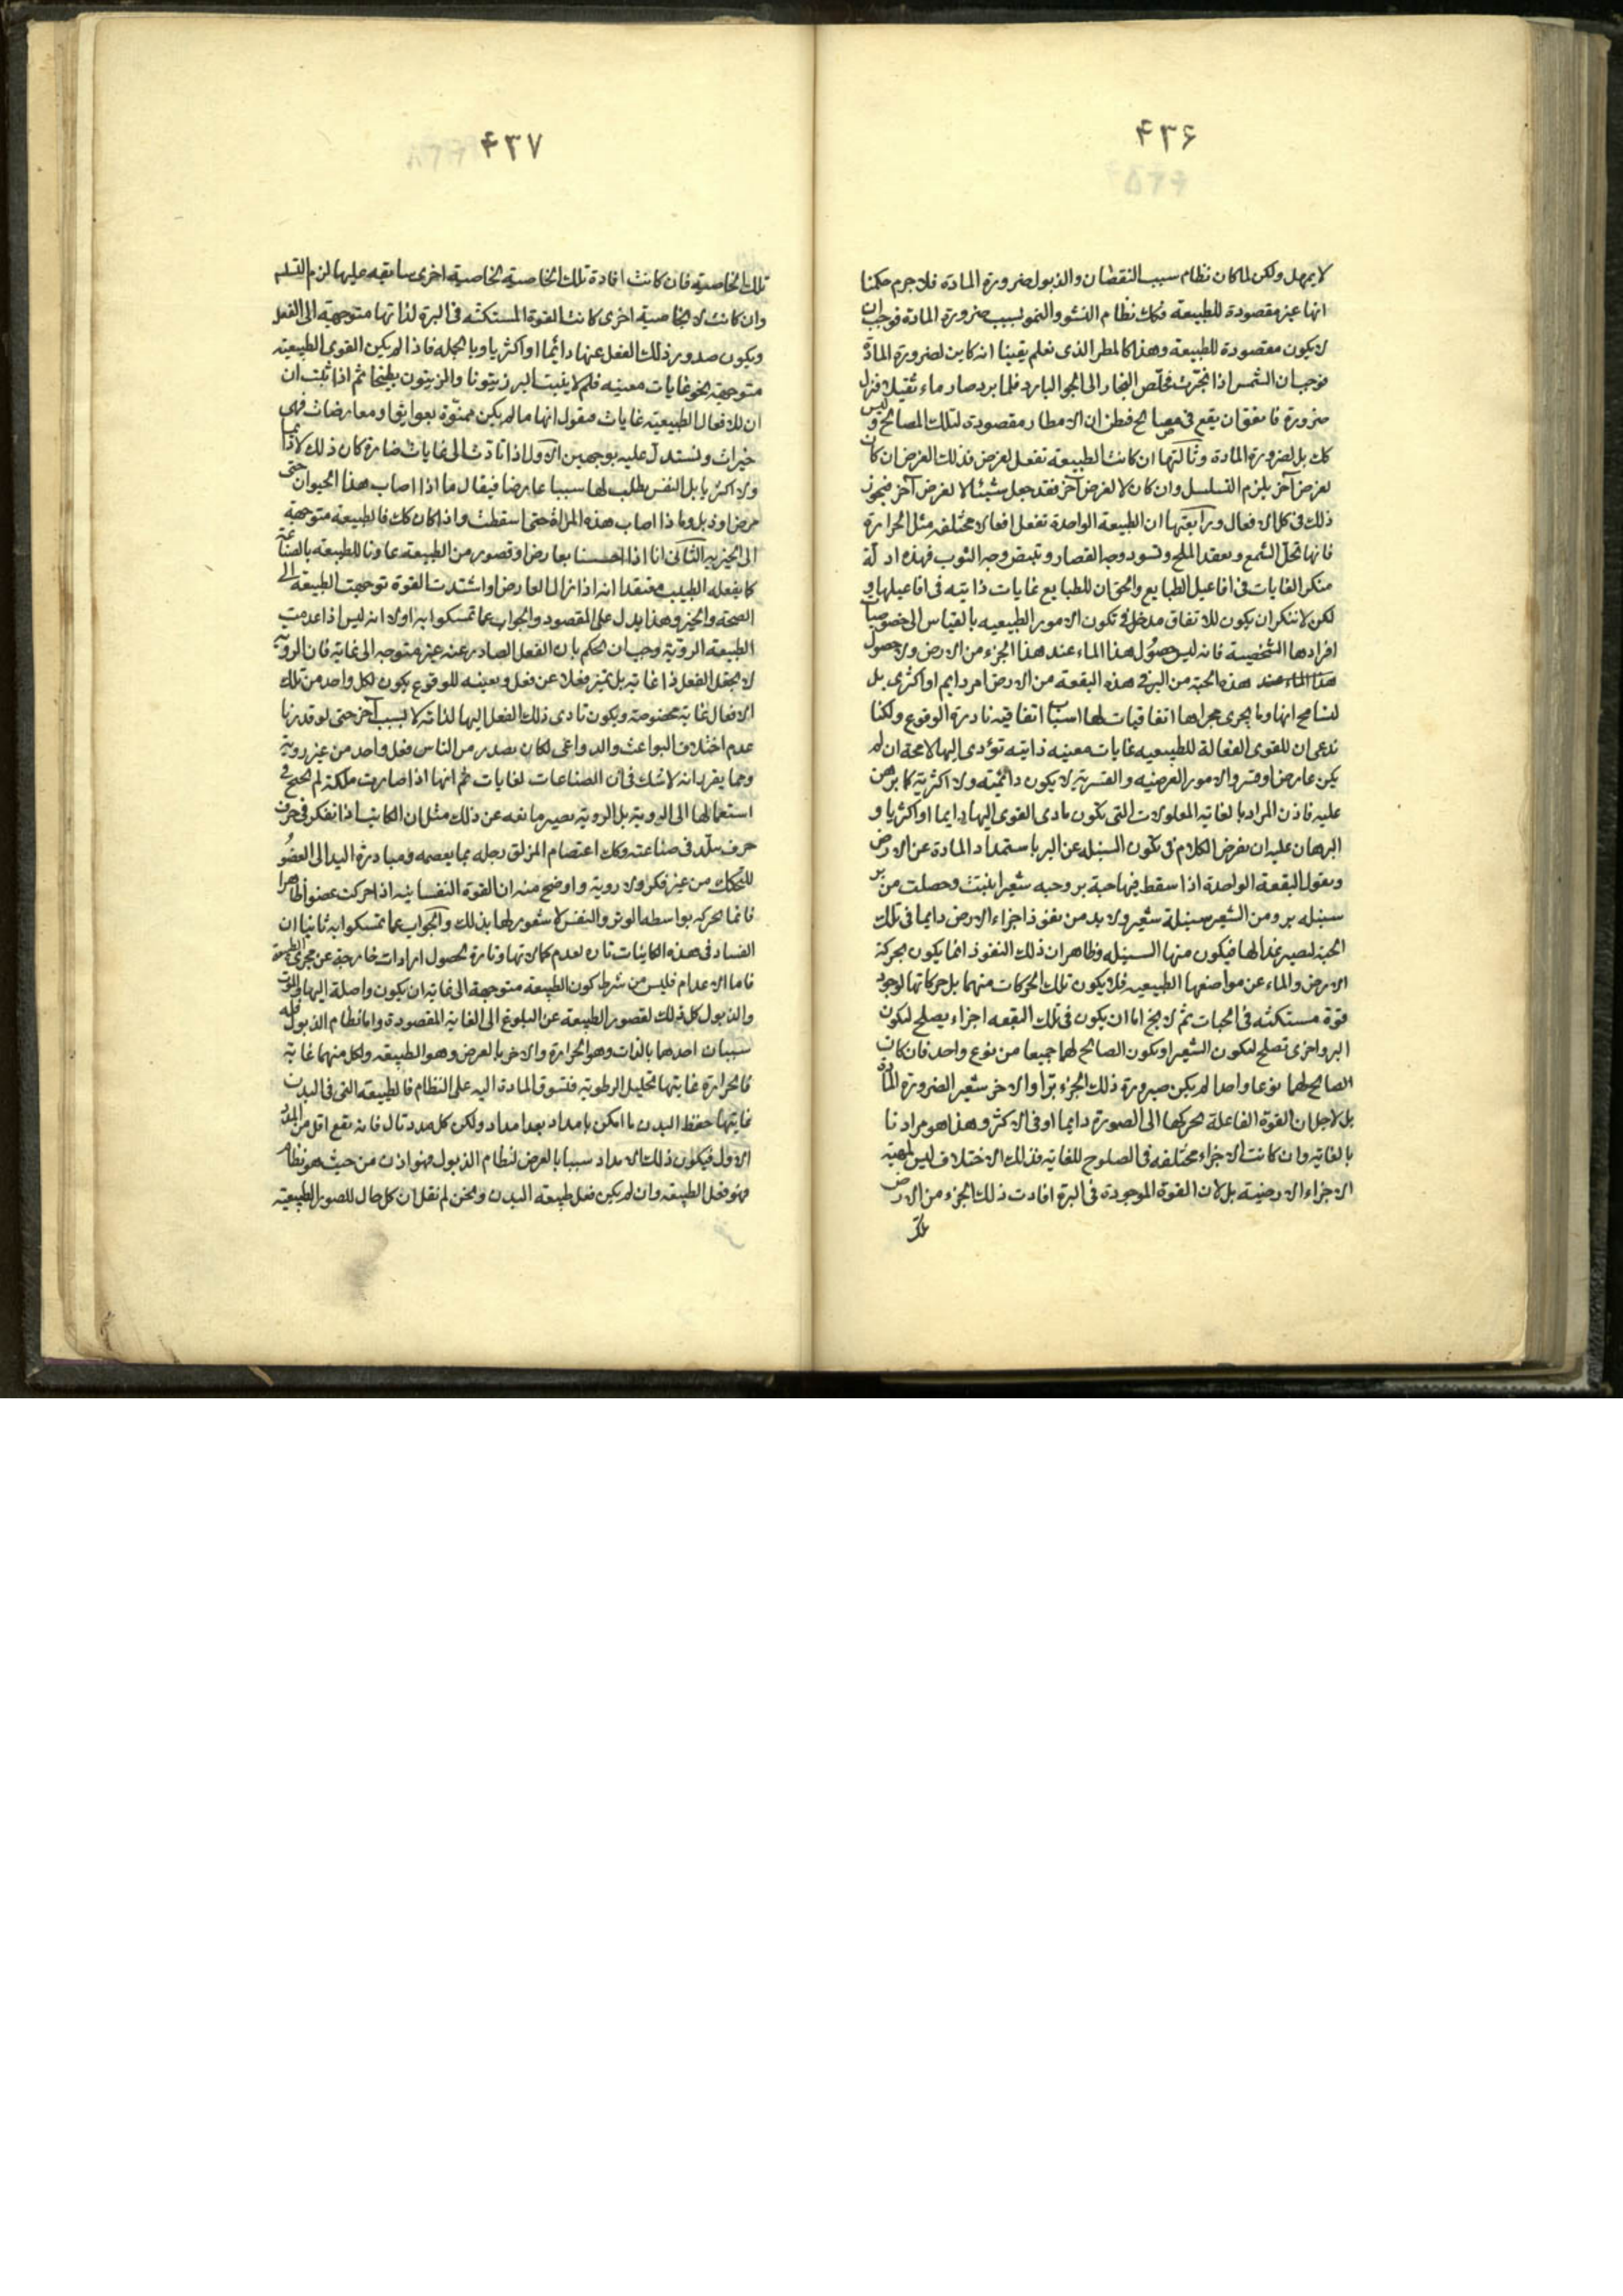 ۴۳۶
لا يهمل ولكن لما كان نظام سبب النقصان والذبول ضرورة المادة فلا جرم حكمنا
انها غير مقصودة للطبيعة فكك نظام النشو والنمو لسبب ضرورة المادة فوجب ان
لا يكون مقصودة للطبيعة وهذا كالمطر الذى نعلم يقينا انه كاين لضرورة المادة
فوجب ان الشمس اذا بخرت فخلص البخار الى الجو البارد فلما برد صار ماء ثقيلا فنزل
ضرورة فاتفق ان يقع فى مصالح فظن ان الامطار مقصودة لتلك المصالح وليس
كك بل لضرورة المادة وثالثتها ان كانت الطبيعة تفعل لغرض فذلك الغرض ان كان
لغرض آخر يلزم التسلسل وان كان لا لغرض آخر فقد جعل شيئا لا لغرض آخر فيجوز
ذلك فى كل الافعال ورابعتها ان الطبيعة الواحدة تفعل افعالا مختلفه مثل الحرارة
فانها تحل الشمع وتعقد الملح وتسود وجه القصار وتبيض وجه الثوب فهذه ادلة
منكرى الغايات فى افاعيل الطبايع والحق ان للطبايع غايات ذاتيه فى افاعيلها و
لكن لا ننكر ان يكون للاتفاق مدخل فى تكون الامور الطبيعيه بالقياس الى خصوصيات
افرادها الشخصية فانه ليس حصول هذا الماء عند هذا الجزء من الارض ولا حصول
هذه الحبة من البر فى هذه البقعة من الارض امر دايم او اكثرى بل
لنسامح انها وما يجرى مجراها اتفاقيات لها اسباب اتفاقيه نادرة الوقوع ولكنا
ندعى ان للقوى الفعالة للطبيعيه غايات معينه ذاتيه تؤدى اليها لا محة ان لم
يكن عارض او قسر والامور العرضيه والقسرية لا يكون دائميته ولا اكثرية كما برهن
عليه فاذن المراد بالغاية المعلولات التى يكون تادى القوى اليها دايما او اكثريا و
البرهان عليه ان نفرض الكلام فى تكون السنبله عن البر باستمداد المادة عن الارض
ونقول البقعة الواحدة اذا سقط فيها حبة بر وحبه شعير انبتت وحصلت من بر
سنبله بر ومن الشعير سنبلة شعير ولا بد من نفوذ اجزاء الارض دايما فى تلك
الحبة لصير غذا لها فيكون منها السنبله وظاهر ان ذلك النفوذ انما يكون بحركة
الارض والماء عن مواضعها الطبيعيه فلا يكون تلك الحركات منهما بل حركاتها لوجود
قوة مستكنه فى الحبات ثم لا يخ اما ان يكون فى تلك البقعه اجزاء يصلح لتكون
البر واخرى تصلح لتكون الشعير او يكون الصالح لهما جميعا من نوع واحد فان كان
الصالح لهما نوعا واحدا لم يكن صيرورة ذلك الجزء برا والاخر شعيرا لضرورة المادة
بل لاجل ان القوة الفاعلة تحركها الى الصورة دايما او فى الاكثر وهذا هو مرادنا
بالغاية وان كانت الاجزاء مختلفه فى الصلوح للغاية فذلك الاختلاف ليس لمهيه
الاجزاء الارضية بل لان القوة الموجودة فى البرة افادت ذلك الجزء من الارض
تلك
۴۳۷
تلك الخاصية فان كانت افادة تلك الخاصية لخاصية اخرى سابقه عليها لزم التسلسل
وان كانت لا لخاصية اخرى كانت القوة المستكنه فى البرة لذاتها متوجهة الى الفعل
ويكون صدور ذلك الفعل عنها دائما او اكثريا وبالجمله فاذا لم يكن القوى الطبيعية
متوجهة نحو غايات معينه فلم لا ينبت البر زيتونا والزيتون بطيخا ثم اذا ثبت ان
ان للافعال الطبيعية غايات فنقول انها ما لم يكن ممنوة بعوايق ومعارضات فهى
خيرات ونستدل عليه بوجهين الاول اذا تادت الى غايات ضارة كان ذلك لا دائما
ولا اكثريا بل النفس يطلب لها سببا عارضا فيقال ما اذا اصاب هذا الحيوان حتى
مرض او ذبل وما ذا اصاب هذه المراة حتى اسقطت واذا كان كك فالطبيعة متوجهة
الى الخيرية الثانى انا اذا احسسنا بعارض او قصور من الطبيعة عاونا للطبيعه بالصناعة
كما يفعله الطبيب معتقدا انه اذا زال العارض او اشتدت القوة توجهت الطبيعة الى
الصحة والخير وهذا يدل على المقصود والجواب عما تمسكوا به اولا انه ليس اذا عدمت
الطبيعة الروية وجب ان يحكم بان الفعل الصادر عنه غير متوجه الى غاية فان الروية
لا يجعل الفعل ذا غاية بل تميز فعلا عن فعل وتعينه للوقوع يكون لكل واحد من تلك
الافعال غاية مخصوصة ويكون تادى ذلك الفعل اليها لذاته لا لسبب آخر حتى لو قدرنا
عدم اختلاف البواعث والدواعى لكان يصدر من الناس فعل واحد من غير روية
ومما يقرر انه لا شك فى ان الصناعات لغايات ثم انها اذا صارت ملكة لم يحتج فى
استعمالها الى الروية بل الروية يصير مانعه عن ذلك مثل ان الكاتب اذا تفكر فى حرف
حرف تبلد فى صناعته وكك اعتصام المزلق رجله بما يعصمه ومبادرة اليد الى العضو
للتحكك من غير فكر ولا روية واوضح منه ان القوة النفسانيه اذا حركت عضوا ظاهرا
فانما تحركه بواسطه الوتر والنفس لا شعور لها بذلك والجواب عما تمسكوا به ثانيا ان
الفساد فى هذه الكاينات تارة لعدم كمالاتها وتارة لحصول ارادات خارجة عن مجرى الطبيعة
فاما الاعدام فليس من شرط كون الطبيعة متوجهة الى غاية ان يكون واصلة اليها والموت
والذبول كل ذلك لقصور الطبيعة عن البلوغ الى الغاية المقصودة واما نظام الذبول فله
سببان احدهما بالذات وهو الحرارة والاخر بالعرض وهو الطبيعه ولكل منهما غاية
فالحرارة غايتها تحليل الرطوبة فتسوق المادة اليه على النظام فالطبيعه التى فى البدن
غايتها حفظ البدن ما امكن بامداد بعد امداد ولكن كل مدد تال فانه يقع اقل من المدد
الاول فيكون ذلك الامداد سببا بالعرض لنظام الذبول فهو اذن من حيث هو نظام
فهو فعل الطبيعه وان لم يكن فعل طبيعه البدن ونحن لم نقل ان كل حال للصور الطبيعية